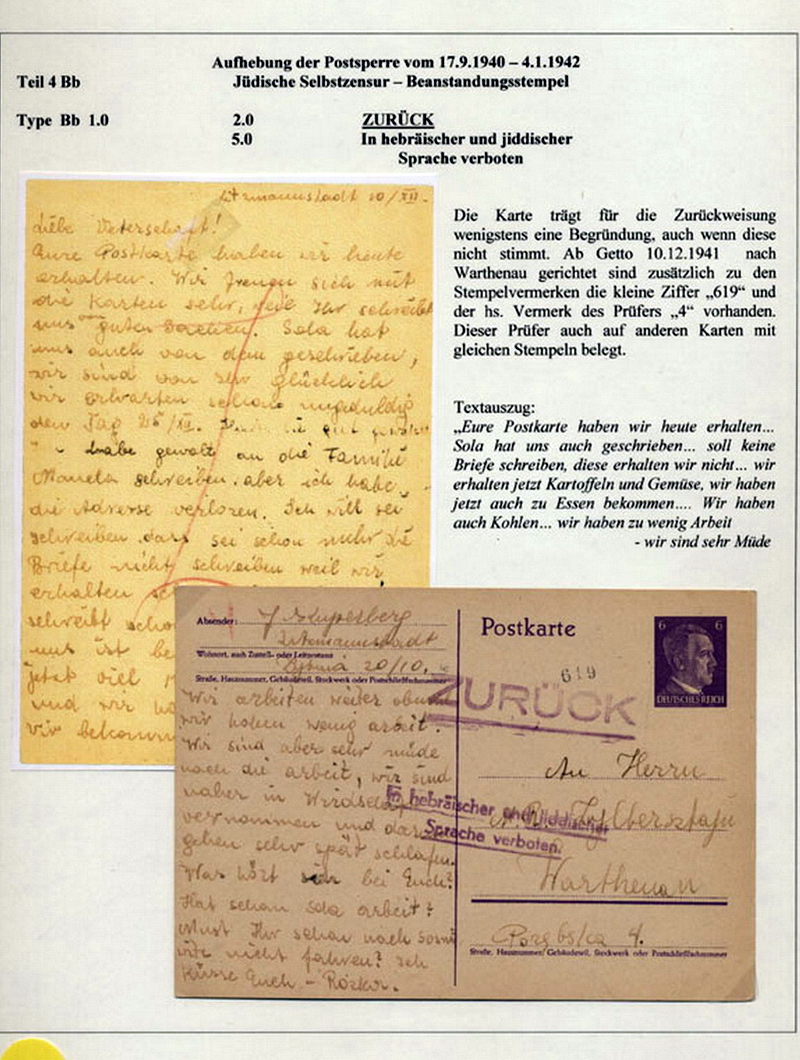 Aufhebung der Postsperre vom 17.9.1940 – 4.1.1942
Teil 4 Bb Jüdische Selbstzensur – Beanstandungsstempel
Type Bb 1.0 2.0 ZURÜCK
5.0 In hebräischer und jiddischer
Sprache verboten
Die Karte trägt für die Zurückweisung
wenigstens eine Begründung, auch wenn diese
nicht stimmt. Ab Getto 10.12.1941 nach
Warthenau gerichtet sind zusätzlich zu den
Stempelvermerken die kleine Ziffer „619“ und
der hs. Vermerk des Prüfers „4“ vorhanden.
Dieser Prüfer auch auf anderen Karten mit
gleichen Stempeln belegt.
Textauszug:
„Eure Postkarte haben wir heute erhalten...
Sola hat uns auch geschrieben... soll keine
Briefe schreiben, diese erhalten wir nicht... wir
erhalten jetzt Kartoffeln und Gemüse, wir haben
jetzt auch zu Essen bekommen.... Wir haben
auch Kohlen... wir haben zu wenig Arbeit
- wir sind sehr Müde
Litzmannstadt 10/XII.
Liebe Vaterschaft!
Eure Postkarte haben wir heute
erhalten. Wir freuen sich mit
die Karten sehr, Ihr schreibt
uns guten Sachen. Sola hat
uns auch von dem geschrieben,
wir sind von sehr glücklich
wir erwarten schon ungeduldig
den Tag 25/XII.
habe gewolt an die Familie
Maneta schreiben, aber ich habe
die Adresse verloren. Ich will sei
schreiben dass sei schon mehr die
Briefe nicht schreiben weil wir
erhalten
schreibt scho
uns ist be
jetzt viel
und wir ha
wir bekomm
Absender: J Kupferberg
Litzmannstadt
Wohnort, auch Zustell- oder Leitpostamt
20/10,
Straße, Hausnummer, Gebäudeteil, Stockwerk oder Postschließfachnummer
Wir arbeiten weiter
wir haben wenig arbeit.
Wir sind aber sehr müde
nach die arbeit, wir sind
naher in
vernommen und
gehen sehr spät schlafen.
Was hört sich bei Euch?
Hat schon Sola arbeit?
Must Ihr schon nach
nicht fahren? Ich
Küsse Euch – Rózka.
Postkarte
6 6
DEUTSCHES REICH
619
ZURÜCK
An Herrn
In hebräischer und jiddischer
Sprache verboten.
Warthenau
4.
Straße, Hausnummer, Gebäudeteil, Stockwerk oder Postschließfachnummer